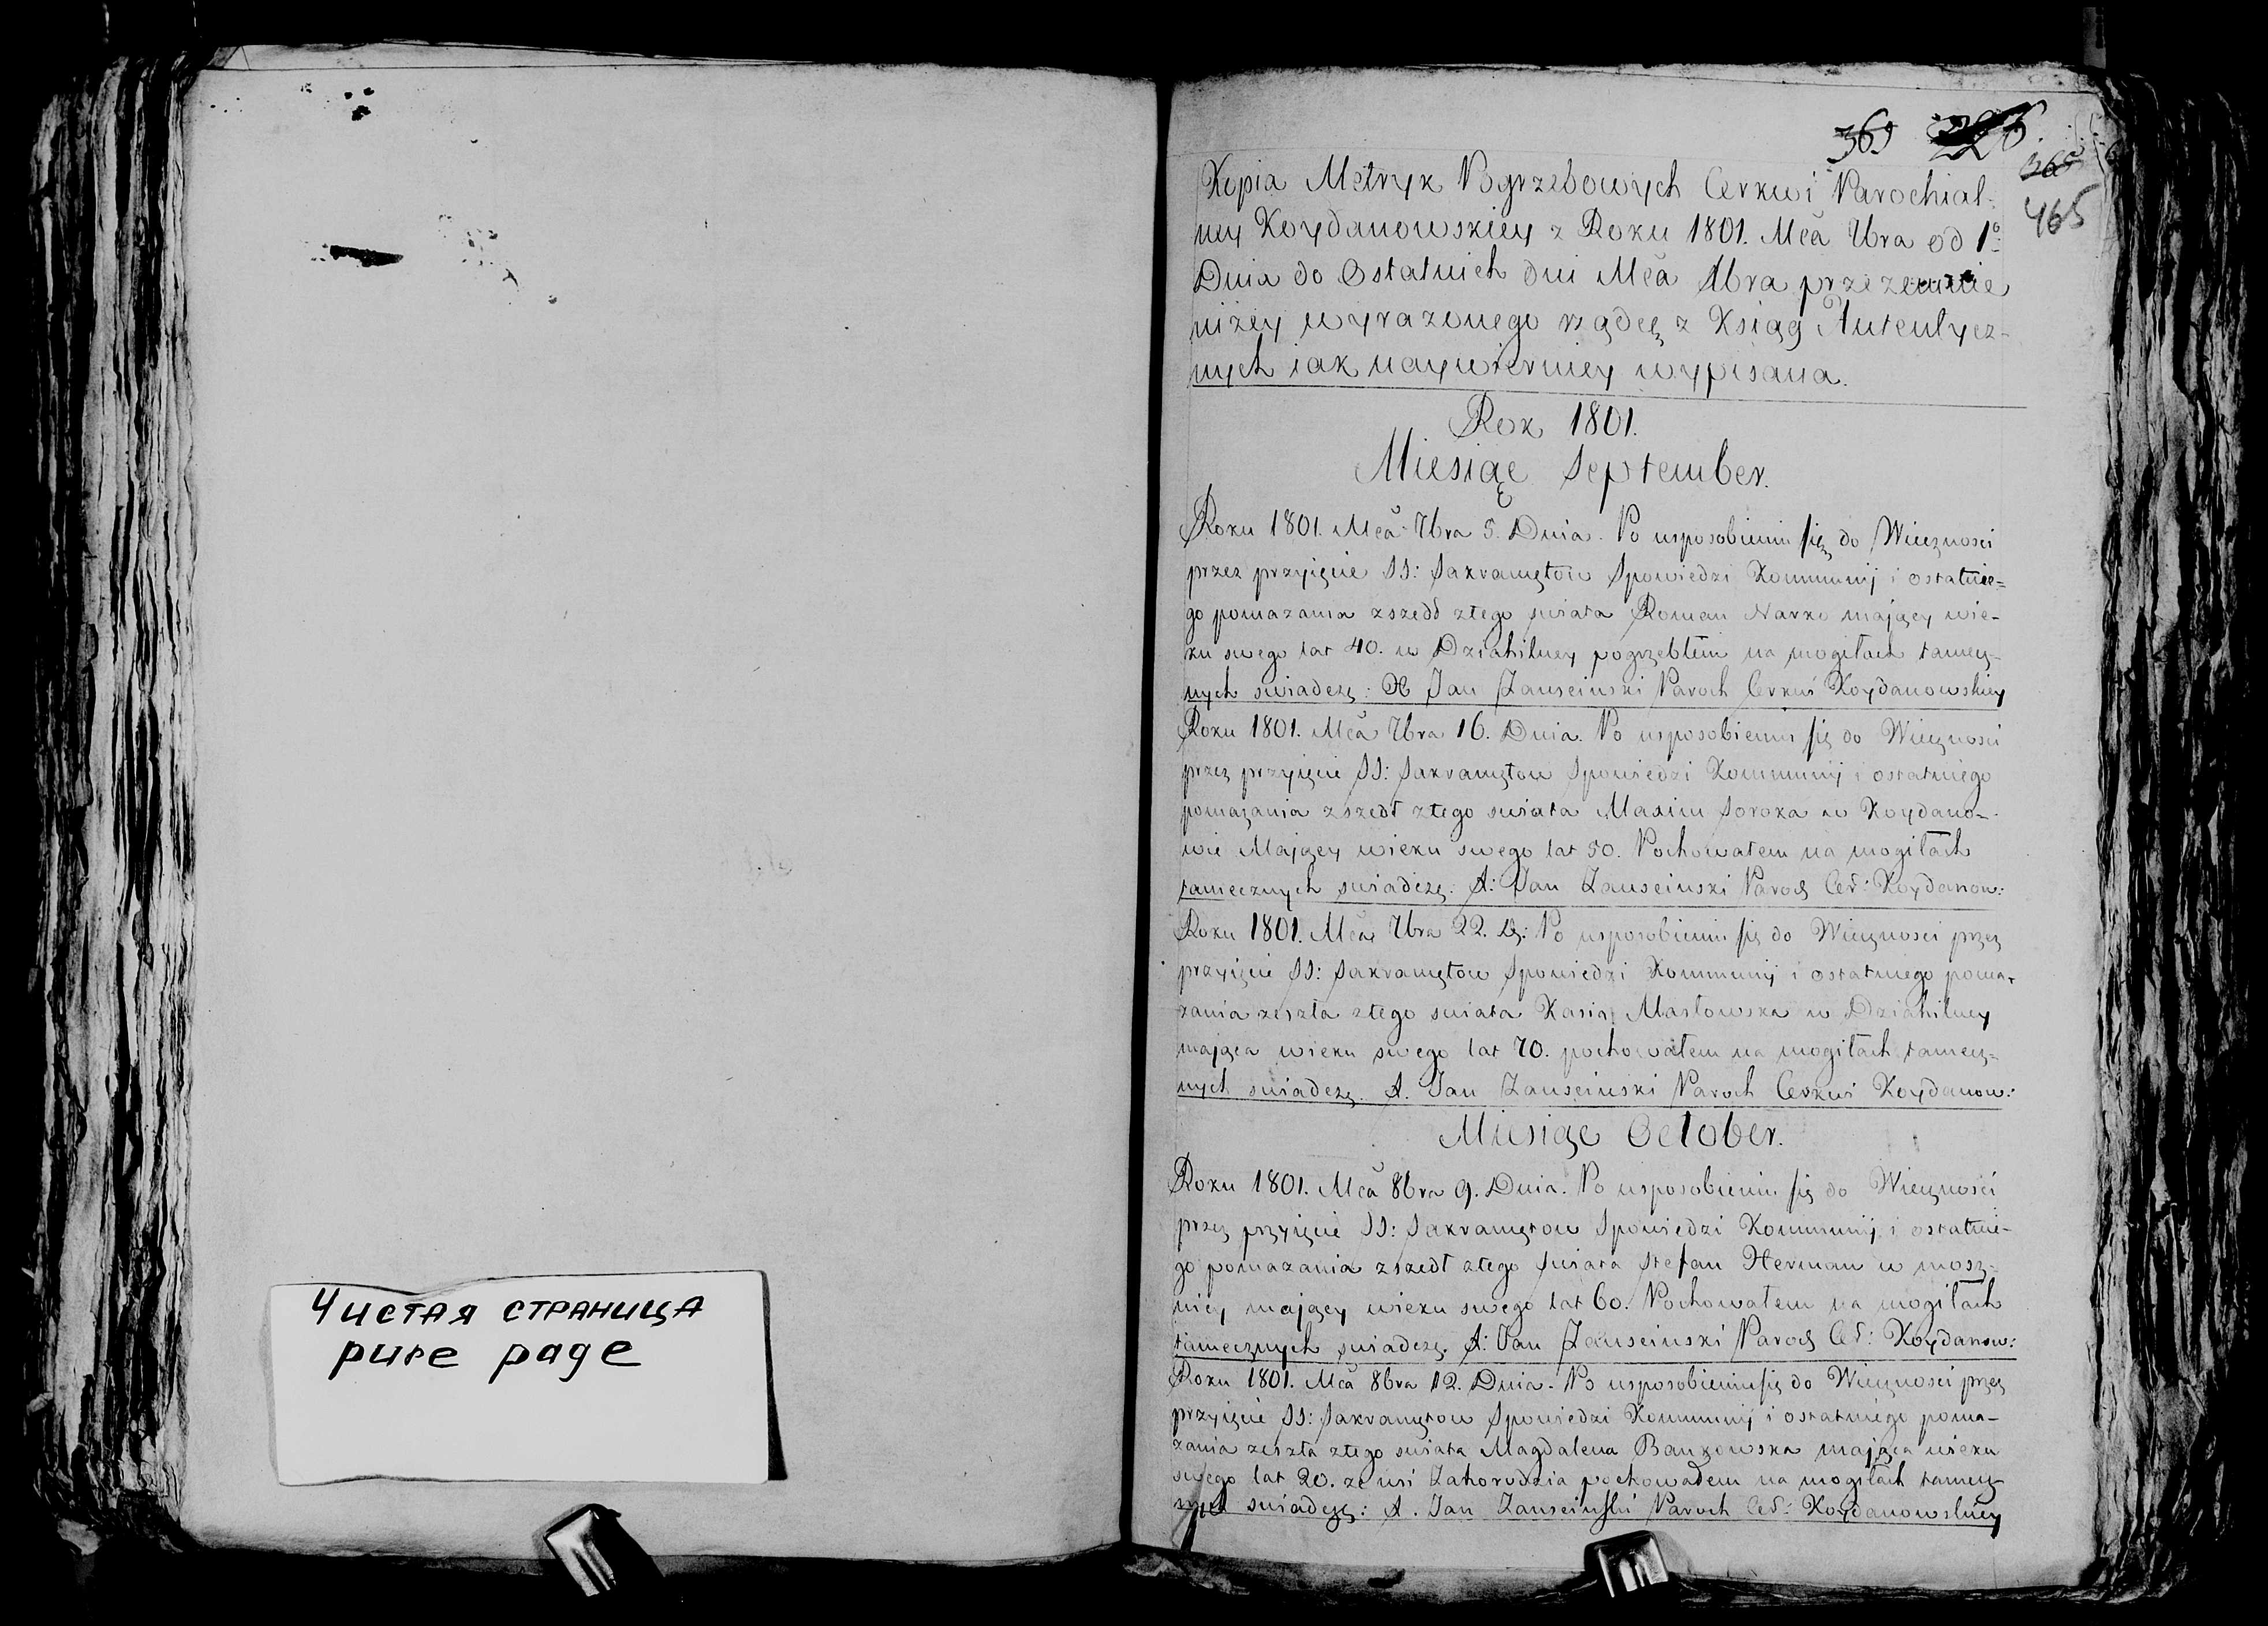 Чистая страница
pure page
369
465
Kopia Metryk Pogrzebowych Cerkwi Parochial-
ney Koydanowskiey z Roku 1801. Mca 7bra od 1o
Dnia do Ostatnich dni Mca przezemnie
niżey wyrazonego rządcę z Ksiąg Autentycz-
nych iak naywierniey wypisana.
Rok 1801.
Miesiąc September.
Roku 1801. Mca 7bra 5. Dnia. Po usposobieniu się do Wiecznosci
przez przyięcie SS: Sakramętow Spowiedzi Kommunij i ostatnie=
go pomazania zszedł ztego swiata Roman Narko maiący wie-
ku swego lat 40. w Dziahilney pogrzebłem na mogiłach tamecz-
nych swiadczę: X Jan Zausciński Paroch Cerkwi Koydanowskiey
Roku 1801. Mca 7bra 16. Dnia. Po usposobieniu się do Wiecznosci
przez przyięcie SS: Sakramętow Spowiedzi Kommunij i ostatniego
pomazania zszedł ztego swiata Maxim Soroka w Koydano-
wie Maiący wieku swego lat 50. Pochowałem na mogiłach
tamecznych swiadczę: X: Jan Zausciński Paroch Cer: Koydanow:
Roku 1801. Mca 7bra 22. D: Po usposobieniu się do Wiecznosci przez
przyięcie SS: Sakramętow Spowiedzi Kommunij i ostatniego poma-
zania zeszła ztego swiata Kasia Masłowska w Dziahilney
maiąca wieku swego lat 70. pochowałem na mogiłach tamecz-
nych swiadczę. X. Jan Zausciński Paroch Cerkwi Koydanow:
Miesiąc October.
Roku 1801. Mca 8bra 9. Dnia. Po usposobieniu się do Wiecznosci
przez przyięcie SS: Sakramętow Spowiedzi Kommunij i ostatnie-
go pomazania zszedł ztego swiata Stefan Herman w mosz-
nicy maiący wieku swego lat 60. Pochowałem na mogiłach
tamecznych swiadczę. X: Jan Zausciński Paroch Cer: Koydanow:
Roku 1801. Mca 8bra 12. Dnia. Po usposobieniu się do Wiecznosci przez
przyięcie SS: Sakramętow Spowiedzi Kommunij i ostatniego poma-
zania zeszła ztego swiata Magdalena maiąca wieku
swego lat 20. ze wsi Zahorodzia pochowałem na mogiłach tamecz-
nych swiadczę: X. Jan Zausciński Paroch Cer: Koydanowskiey